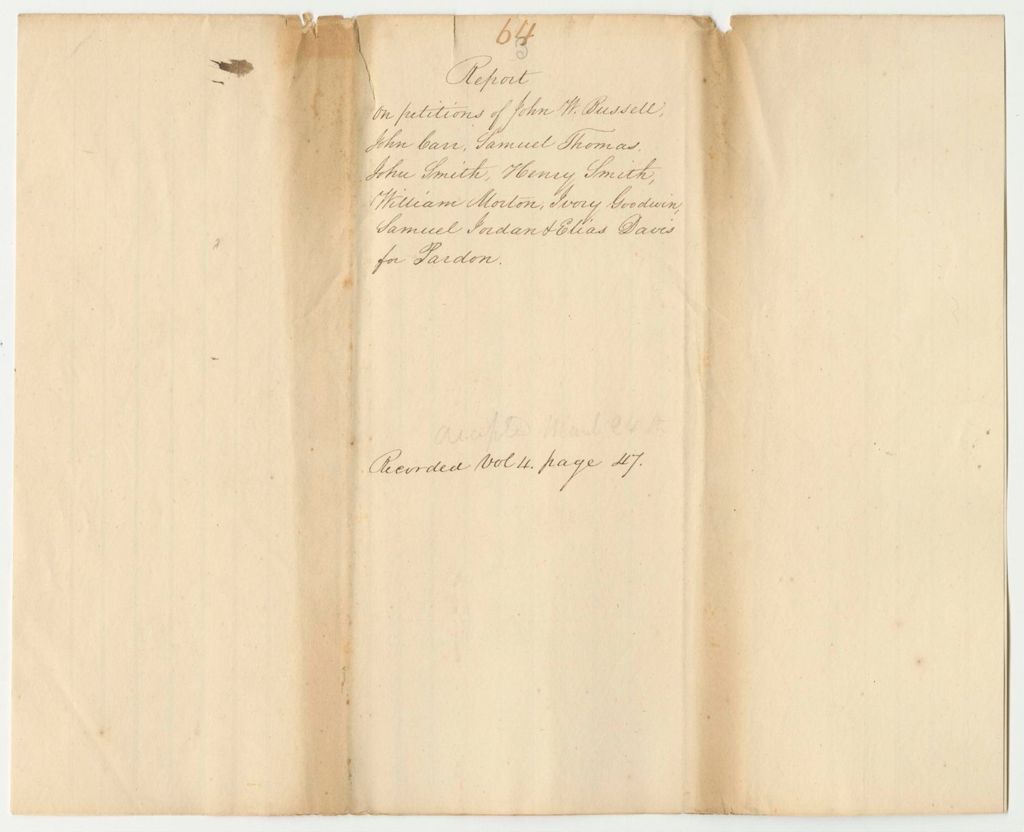 64
3
Report
On petitions of John W. Russell,
John Carr, Samuel Thomas,
John Smith, Henry Smith,
William Morton, Ivory Goodwin,
Samuel Jordan & Elias Davis
for Pardon.
accepted March 24th
Recorded Vol 4. page 47.